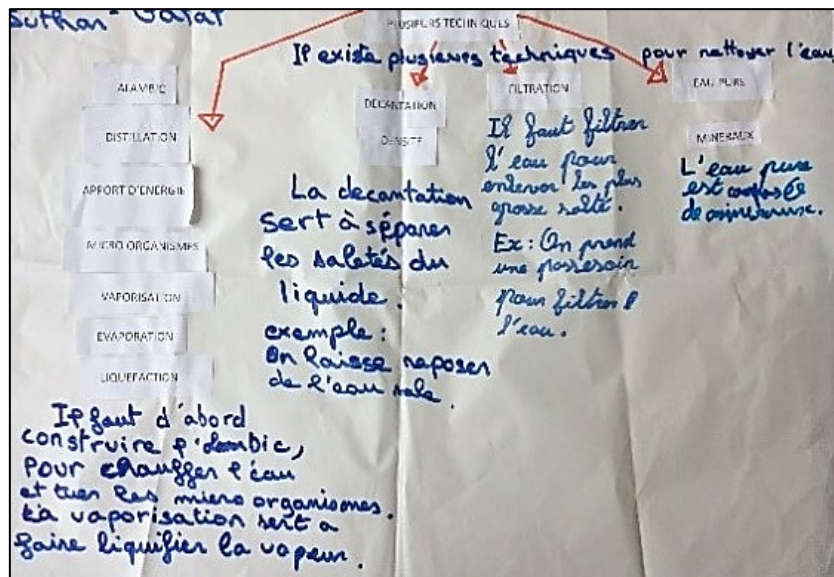 PLUSIEURS TECHNIQUES
Il existe plusieurs techniques pour nettoyer l'eau
ALAMBIC
DISTILLATION
APPORT D'ENERGIE
MICRO ORGANISMES
VAPORISATION
EVAPORATION
LIQUEFACTION
Il faut d'abord
construire l'
pour chauffer l'eau
et tuer les micro organismes.
La vaporisation sert a
faire liquifier la vapeur.
DECANTATION
DENSITE
La decantation
sert à séparer
les saletés du
liquide.
exemple:
On laisse reposer
de l'eau sale.
FILTRATION
Il faut filtrer
l'eau pour
enlever les plus
grosse salté.
Ex: On prend
une
pour filtrer
l'eau.
EAU PURE
MINERAUX
L'eau pure
est composée
de